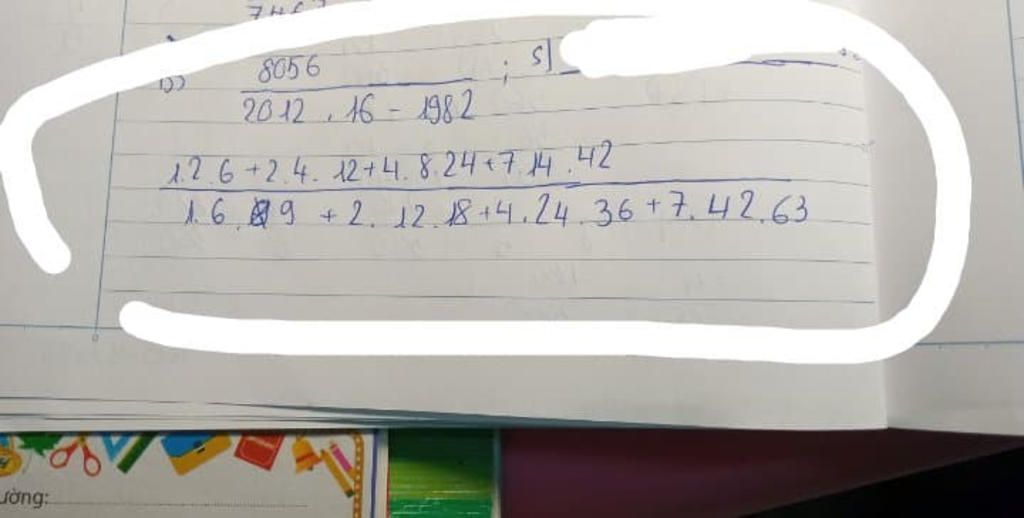 b) 8056 ; s)
2012 . 16 - 1982
1.2.6 + 2.4.12 + 4.8.24 + 7.14.42
1.6.9 + 2.12.18 + 4.24.36 + 7.42.63
ường: